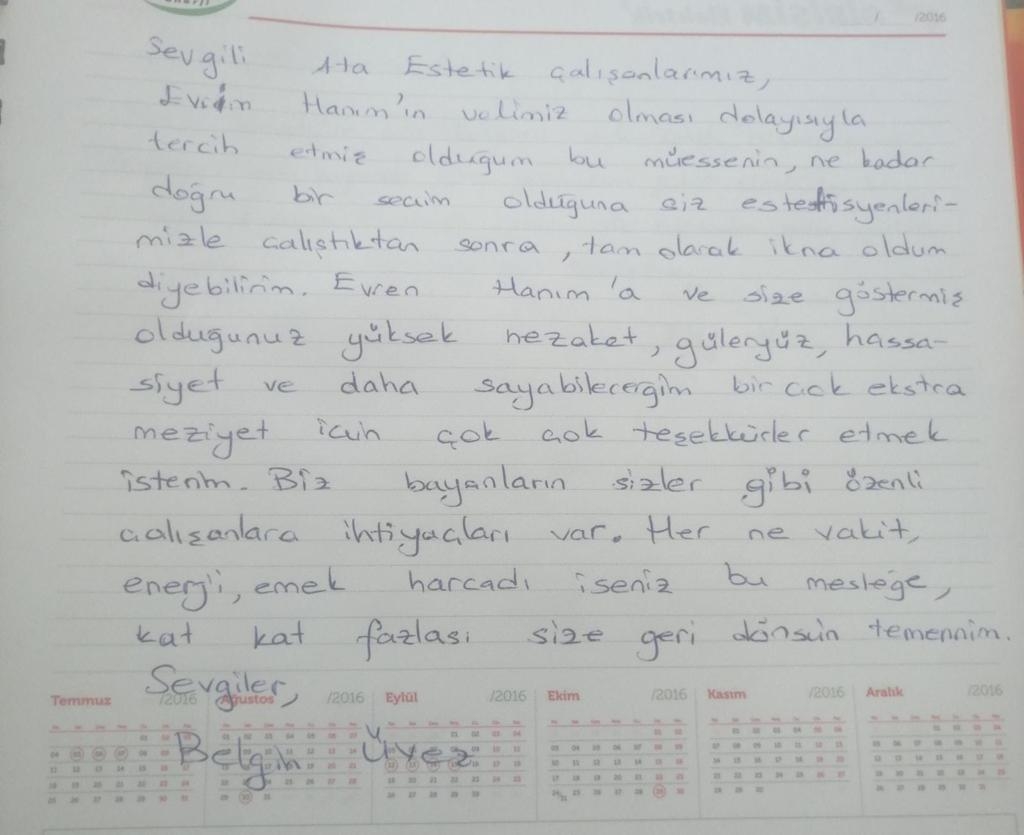 / /2016
Sevgili Ata Estetik çalışanlarımız,
Evrim Hanım'ın velimiz olması dolayısıyla
tercih etmiş olduğum bu müessenin, ne kadar
doğru bir seçim olduğuna siz estetisyenleri-
mizle çalıştıktan sonra, tam olarak ikna oldum
diyebilirim. Evren Hanım'a ve size göstermiş
olduğunuz yüksek nezaket, güleryüz, hassa-
siyet ve daha sayabileceğim bir çok ekstra
meziyet için çok çok teşekkürler etmek
isterim. Biz bayanların sizler gibi özenli
çalışanlara ihtiyaçları var. Her ne vakit,
enerji, emek harcadı iseniz bu mesleğe,
kat kat fazlası size geri dönsün temennim.
Sevgiler,
Temmuz /2016 Ağustos /2016 Eylül /2016 Ekim /2016 Kasım /2016 Aralık /2016
Belgin Üvez